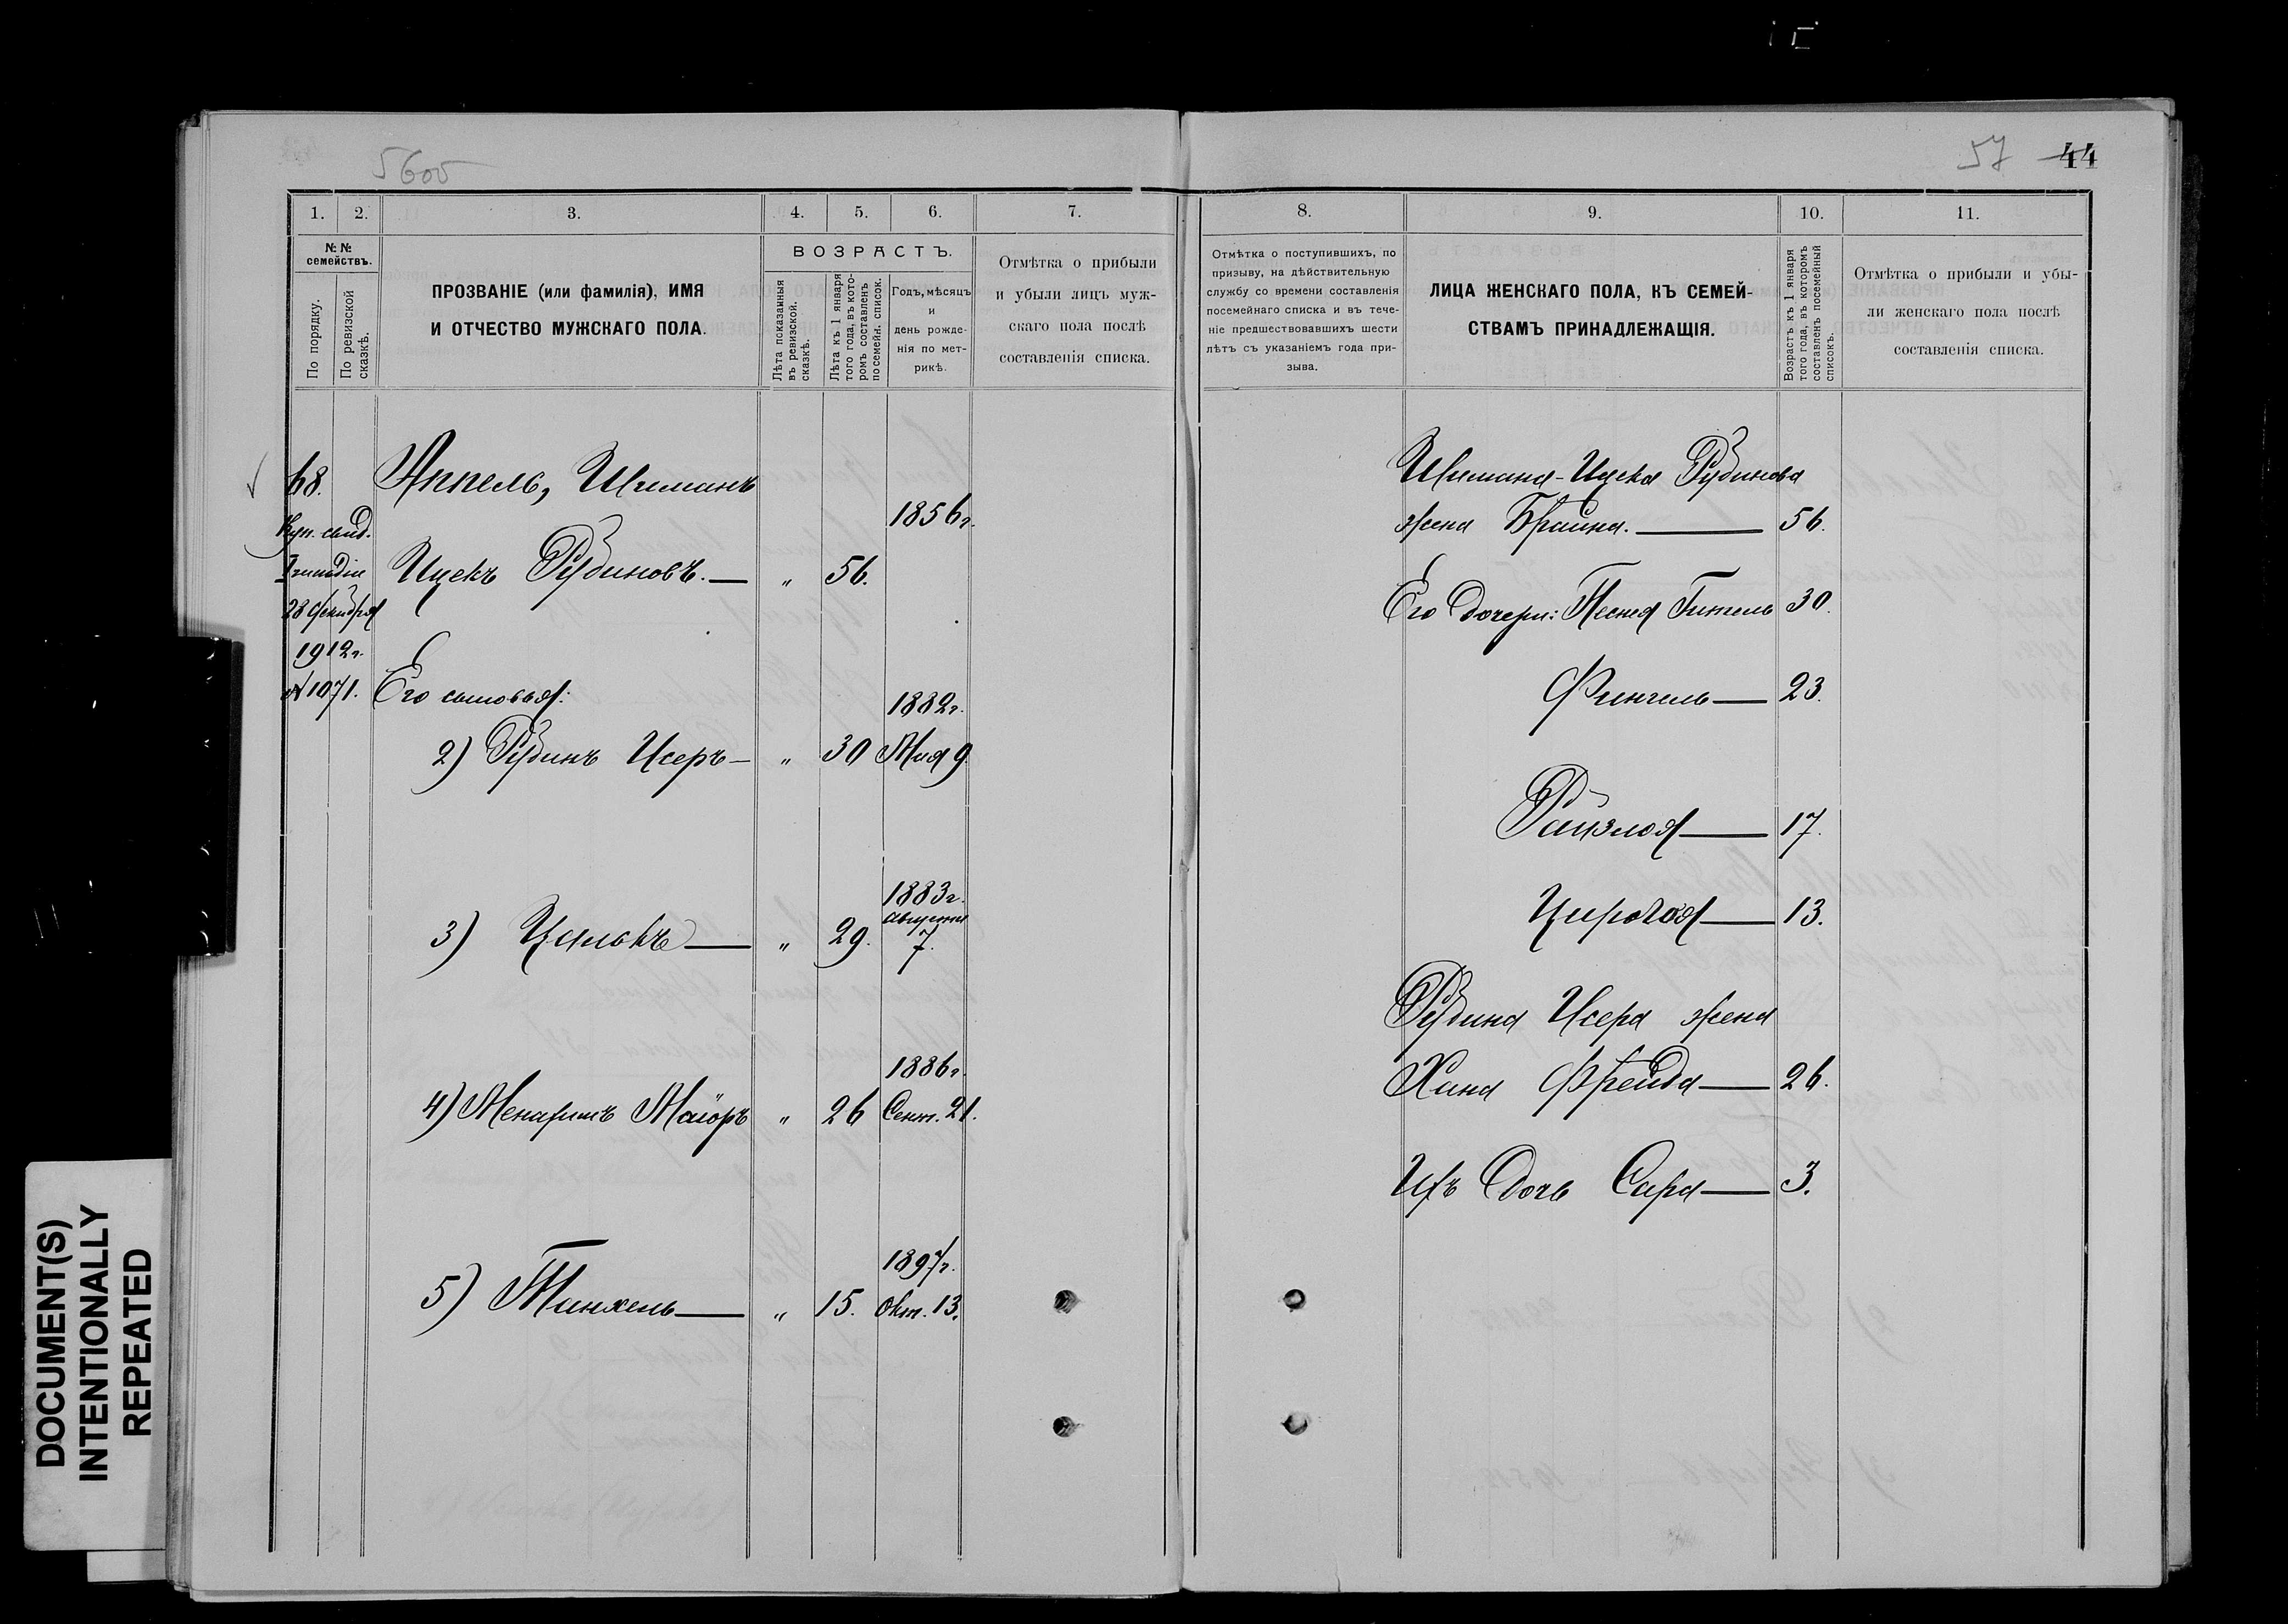 5600
57 44
1. 2. 3. 4. 5. 6. 7.
№ № семействъ.
По порядку.
По ревизской сказкѣ.
ПРОЗВАНІЕ (или фамилія), ИМЯ
И ОТЧЕСТВО МУЖСКАГО ПОЛА.
ВОЗРАСТЪ.
Лѣта показанныя
въ ревизской.
сказкѣ.
Лѣта къ 1 января
того года, въ кото-
ромъ составленъ
посемейн. список.
Годъ, мѣсяцъ
и
день рожде-
нія по мет-
рикѣ.
Отмѣтка о прибыли
и убыли лицъ муж-
скаго пола послѣ
составленія списка.
68. Аппель, Шиманъ
1856г.
Куп. свид.
Ицекъ Рубиновъ. — „ 56.
I гильдіи
28 декабря
1912г.
№ 1071.
Его сыновья:
1882г.
2) Рубинъ Исеръ — „ 30 Мая 9
1883г.
августа
3) Цалькъ — „ 29. 7.
1886г.
4) Менахимъ Маіоръ „ 26 Сент. 21.
1897г.
5) Танхель — „ 15. Окт. 13.
8. 9. 10. 11.
Отмѣтка о поступившихъ, по
призыву, на дѣйствительную
службу со времени составленія
посемейнаго списка и въ тече-
ніе предшествовавшихъ шести
лѣтъ съ указаніемъ года при-
зыва.
ЛИЦА ЖЕНСКАГО ПОЛА, КЪ СЕМЕЙ-
СТВАМЪ ПРИНАДЛЕЖАЩІЯ.
Возрастъ къ 1 января
того года, въ которомъ
составленъ посемейный
списокъ.
Отмѣтка о прибыли и убы-
ли женскаго пола послѣ
составленія списка.
Шимана-Ицека Рубинова
жена Брайна. — 56.
Его дочери: Песня Гитель 30.
Фингель — 23.
Райзля — 17.
13.
Рубина Исера жена
Хана Фрейда — 26.
Ихъ дочь Сара — 3.
DOCUMENT(S)
INTENTIONALLY
REPEATED